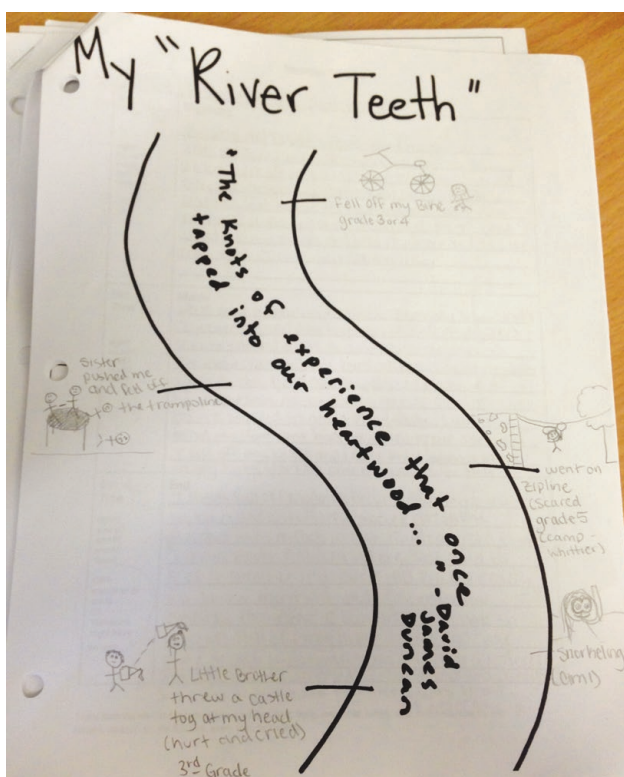 My "River Teeth"
"The Knots of experience that once
tapped into our heartwood... " - David
James
Duncan
Fell off my Bike
grade 3 or 4
Sister
pushed me
and fell off
the trampoline
went on
Zipline
(scared
grade 5
(camp -
whittier)
Snorkeling
Little Brother
threw a castle
tog at my head
(hurt and cried)
3rd Grade